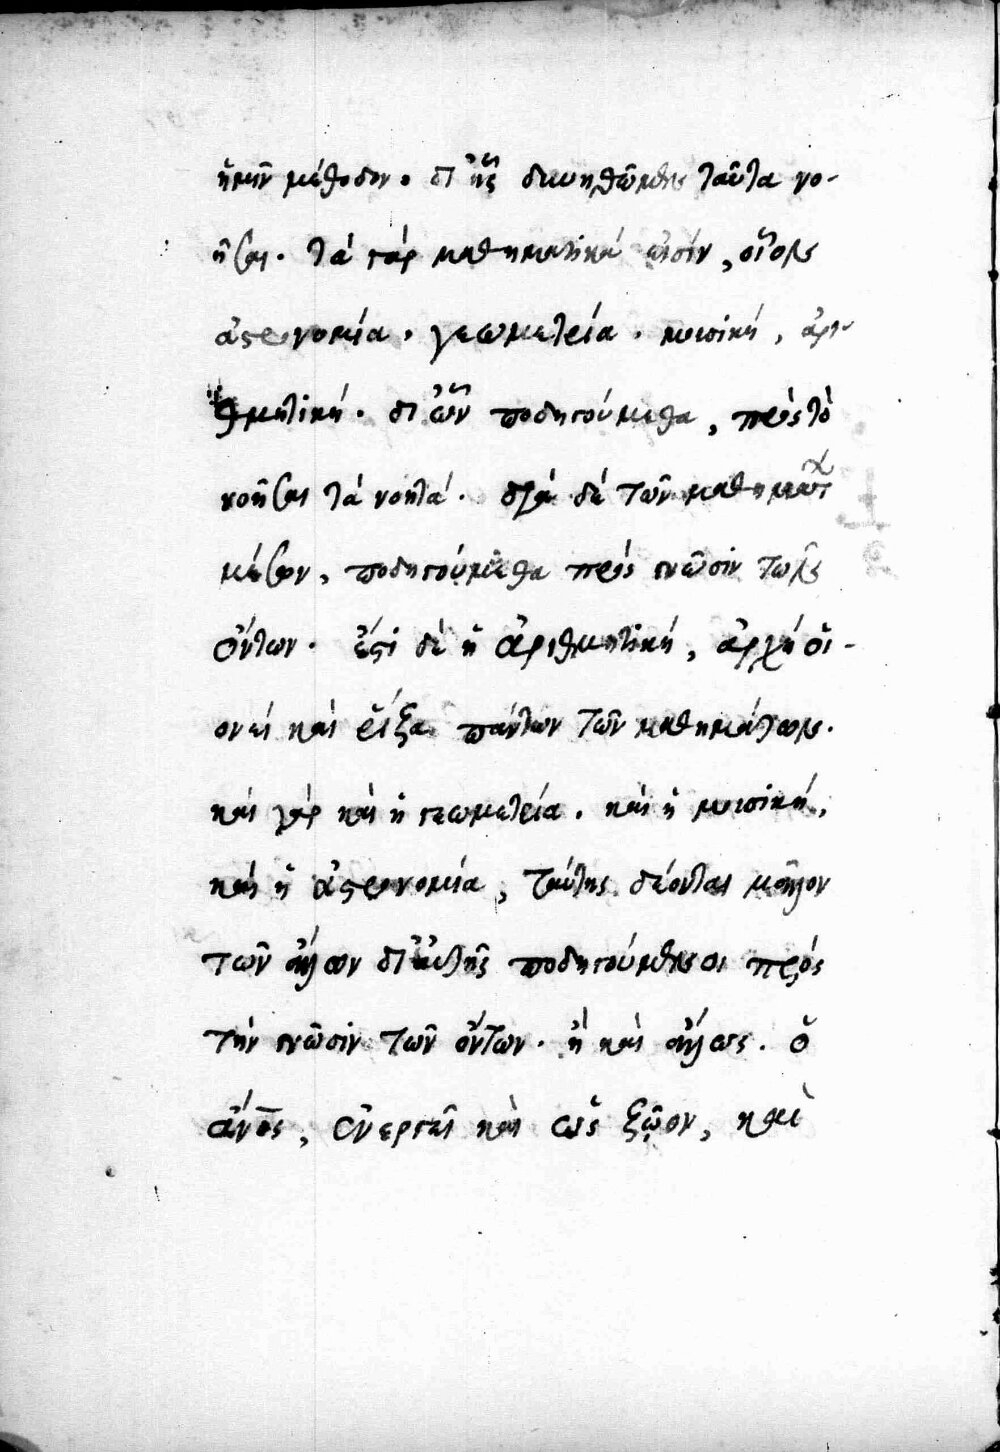 ἡμῖν μέθοδον. δι' ἧς δυνηθῶμεν ταῦτα νο-
ῆσαι. τὰ γὰρ μαθηματικά εἰσίν, οἷον
ἀστρονομία. γεωμετρία. μουσικὴ, ἀρι-
θμητική. δι' ὧν ποδηγούμεθα, πρὸς τὸ
νοῆσαι τὰ νοητά. διὰ δὲ τῶν μαθημάτ
μέσον, ποδηγούμεθα πρὸς γνῶσιν τῶν
ὄντων. ἐστὶ δὲ ἡ ἀριθμητικὴ, ἀρχὴ οἱ-
ονεὶ καὶ ῥίζα πάντων τῶν μαθημάτων.
καὶ γὰρ καὶ ἡ γεωμετρία. καὶ ἡ μουσικὴ,
καὶ ἡ ἀστρονομία, ταύτης δέονται μᾶλλον
τῶν ἄλλων δι' αὐτῆς ποδηγούμενοι πρὸς
τὴν γνῶσιν τῶν ὄντων. ἢ καὶ ἄλλως. ὁ
ἄνος, ἐνεργεῖ καὶ ὡς ζῶον, καὶ